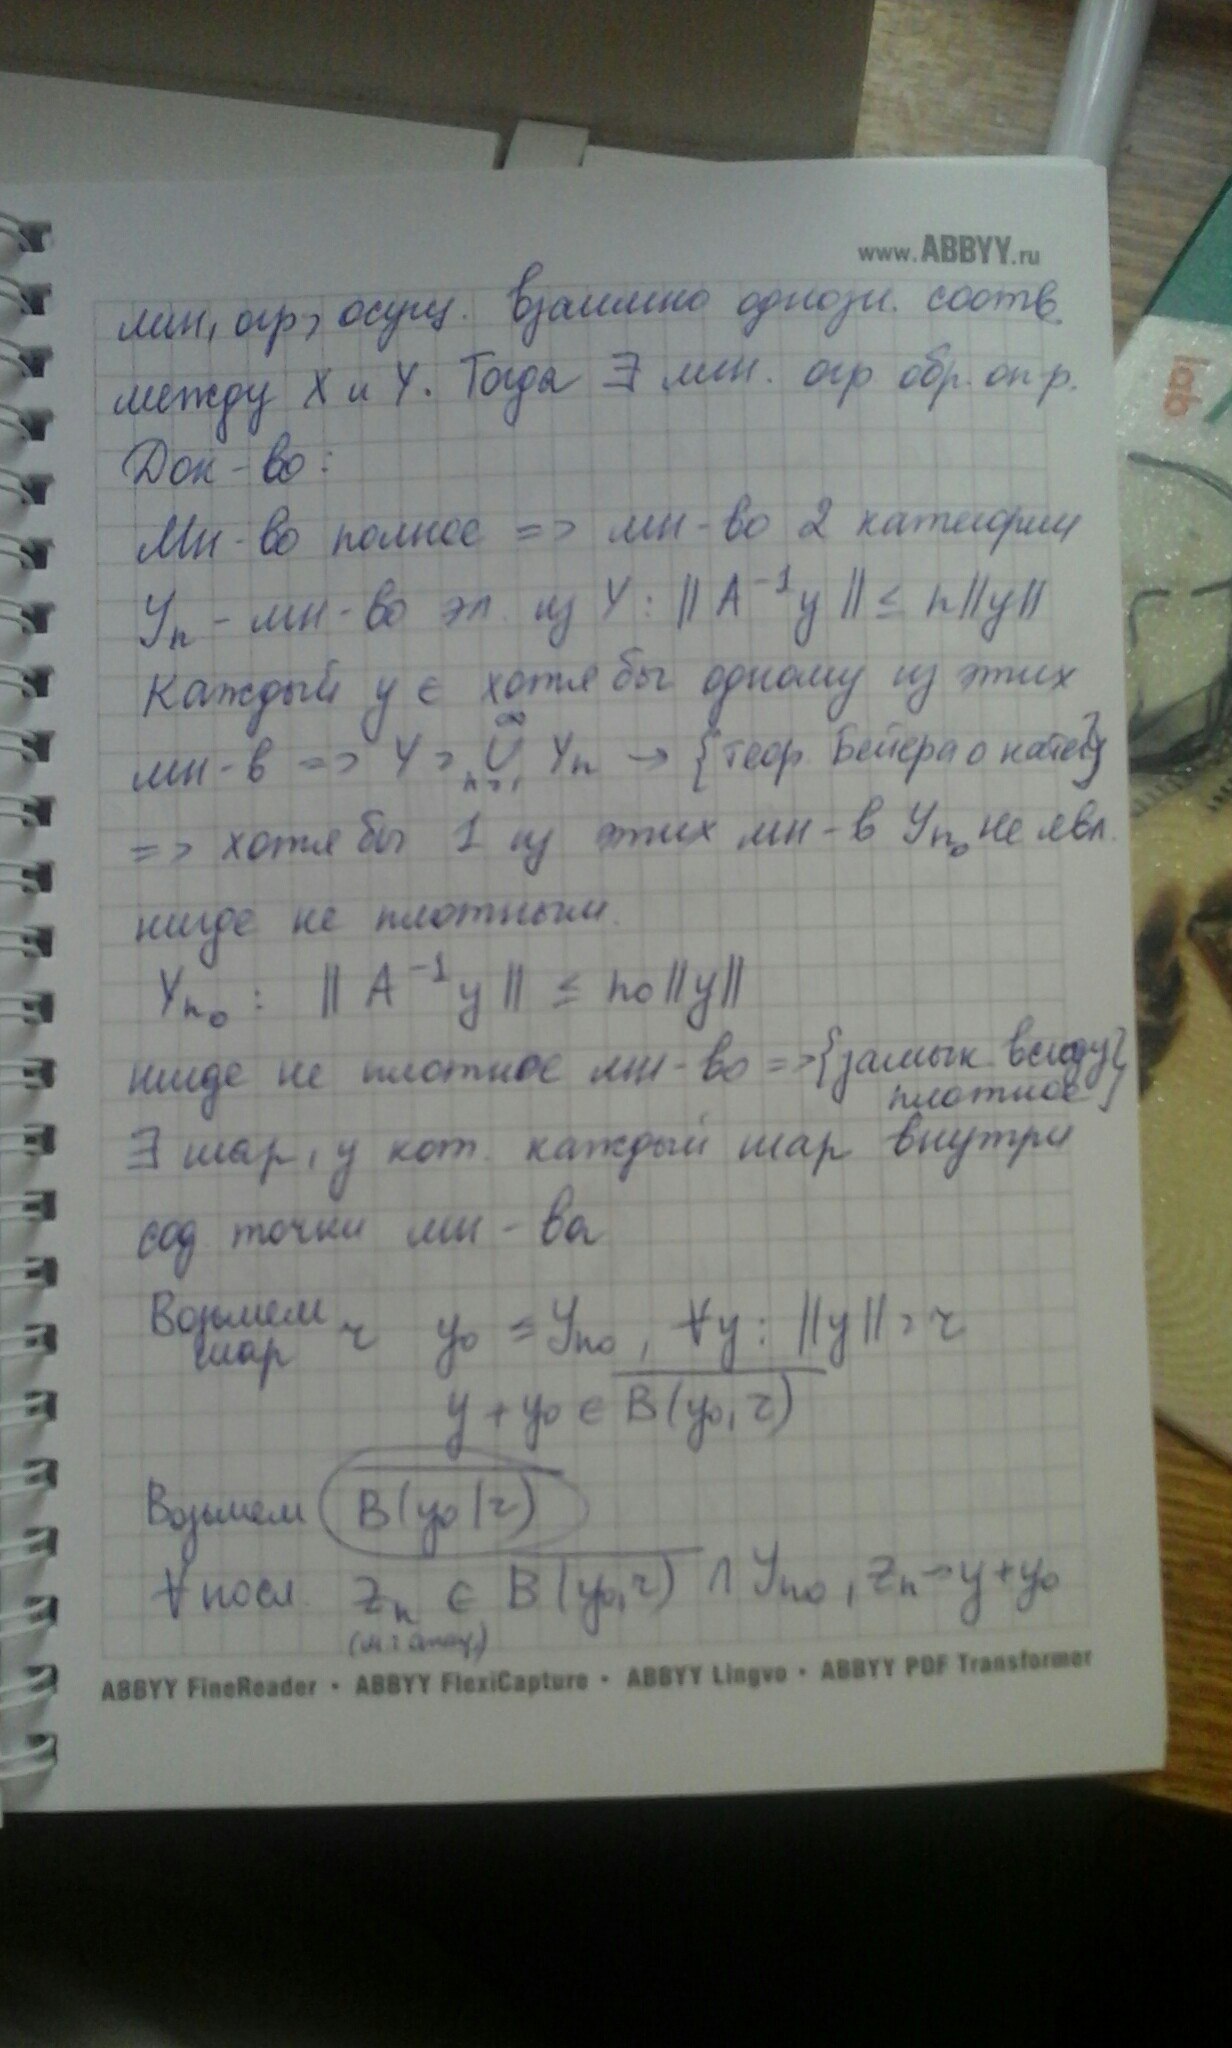 www.ABBYY.ru
лин, огр, осущ. взаимно однозн. соотв.
между X и Y. Тогда ∃ лин. огр обр. опр.
Док-во:
Мн-во полное => мн-во 2 категории
Yn - мн-во эл. из Y: ||A⁻¹y|| ≤ n||y||
Каждый y ∈ хотя бы одному из этих
мн-в => Y = ∞∪n=1 Yn → {теор. Бейера о катег}
=> хотя бы 1 из этих мн-в Yn₀ не явл.
нигде не плотным.
Yn₀: ||A⁻¹y|| ≤ n₀||y||
нигде не плотное мн-во => {замык. всюду
плотное}
∃ шар, у кот. каждый шар внутри
сод точки мн-ва
Возьмем
шар r y₀ ∈ Yn₀, ∀y: ||y|| = r
y + y₀ ∈ B(y₀, r)
Возьмем B(y₀, r)
∀ посл. zn ∈ B(y₀, r) ∩ Yn₀, zn → y + y₀
ABBYY FineReader • ABBYY FlexiCapture • ABBYY Lingvo • ABBYY PDF Transformer
lab